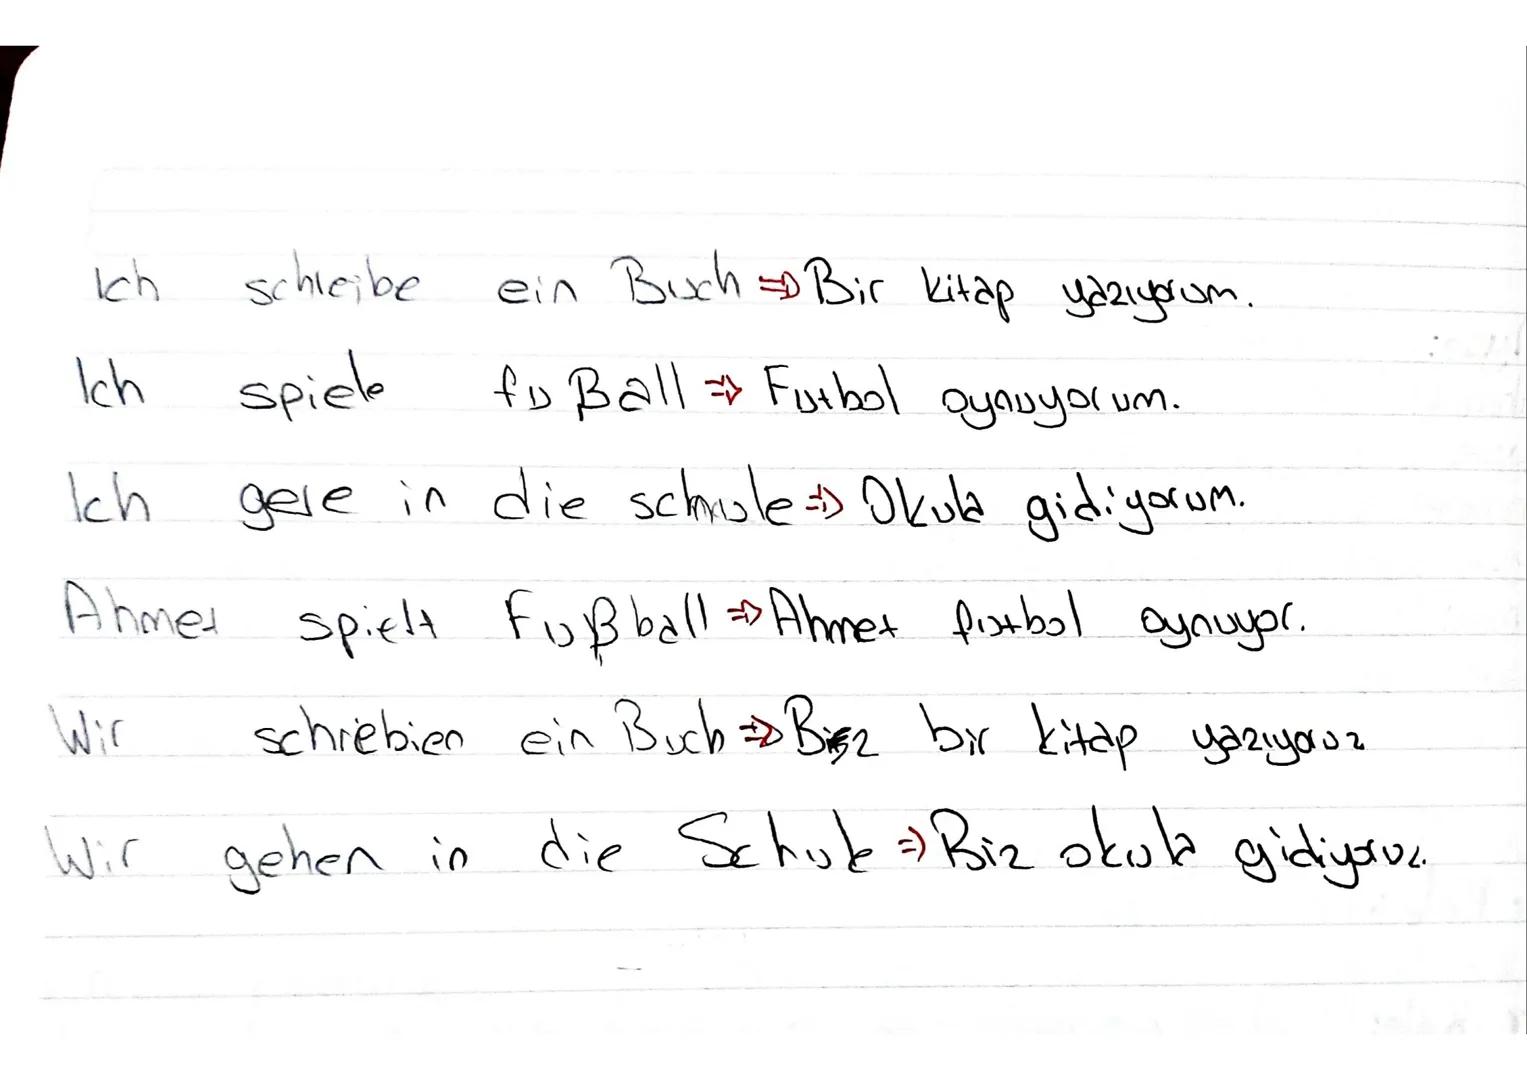 Ich schreibe ein Buch ⇒ Bir kitap yazıyorum.
Ich spiele fußall ⇒ Futbol oynuyorum.
Ich gere in die schule ⇒ Okula gidiyorum.
Ahmet spielt Fußball ⇒ Ahmet futbol oynuyor.
Wir schriebien ein Buch ⇒ Biz bir kitap yazıyoruz
Wir gehen in die Schule ⇒ Biz okula gidiyoruz.